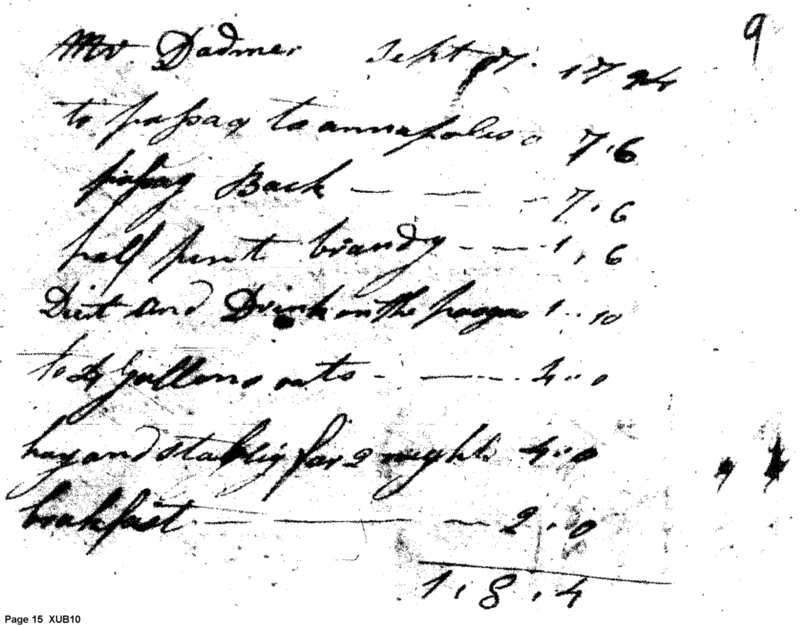 9
Mr. Dadmer Sept 1794
to pasag to annapolis 7.6
pasag Back — — - 7.6
half pint brandy - — - 1,6
Diet and Drink on the pasage 1..10
to 4 Gallons oats - — - 4..0
hay and stablig for 2 night 4..0
brakfast — — — 2.0
1.8.4
Page 15 XUB10